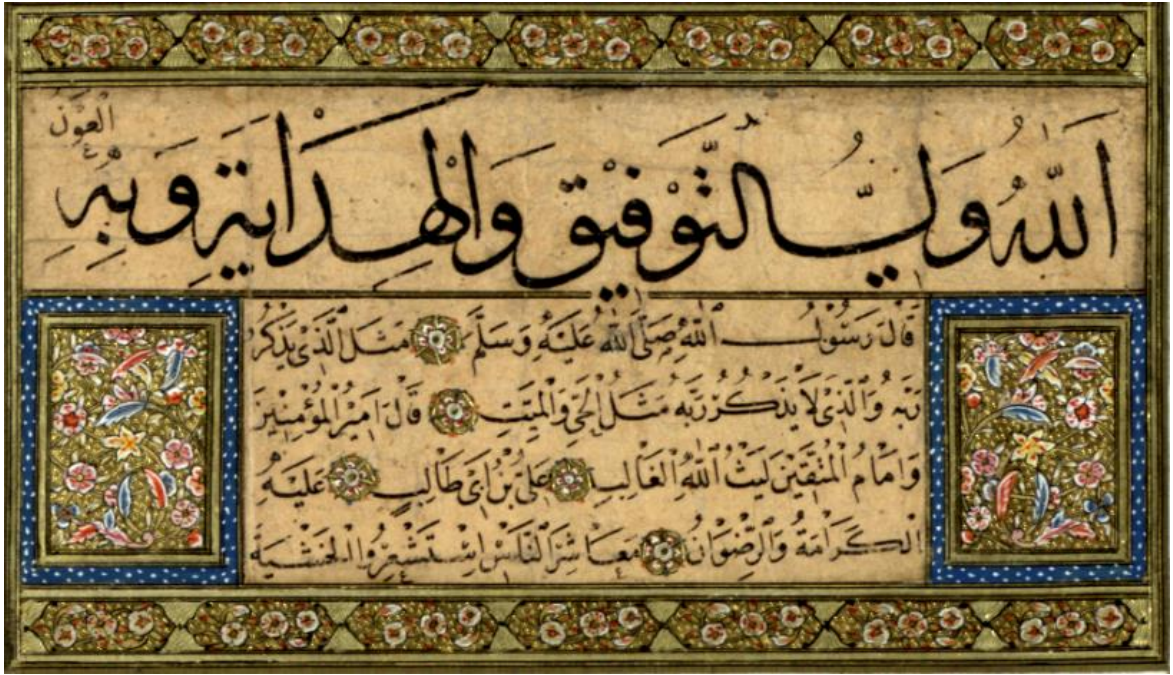 اَللّٰهُ وَلِيُّ التَّوْفِيْقِ وَالْهِدَايَةِ وَبِهِ
الْعَوْنُ
قَالَ رَسُوْلُ اللّٰهِ صَلَّى اللّٰهُ عَلَيْهِ وَسَلَّمَ مَثَلُ الَّذِيْ يَذْكُرُ
رَبَّهُ وَالَّذِيْ لَا يَذْكُرُ رَبَّهُ مَثَلُ الْحَيِّ وَالْمَيِّتِ قَالَ اَمِيْرُ الْمُؤْمِنِيْنَ
وَاِمَامُ الْمُتَّقِيْنَ لَيْثُ اللّٰهِ الْغَالِبِ عَلِيُّ بْنُ اَبِيْ طَالِبٍ عَلَيْهِ
الْكَرَامَةُ وَالرِّضْوَانُ مَعَاشِرَ النَّاسِ اِسْتَشْعِرُوا الْخَشْيَةَ